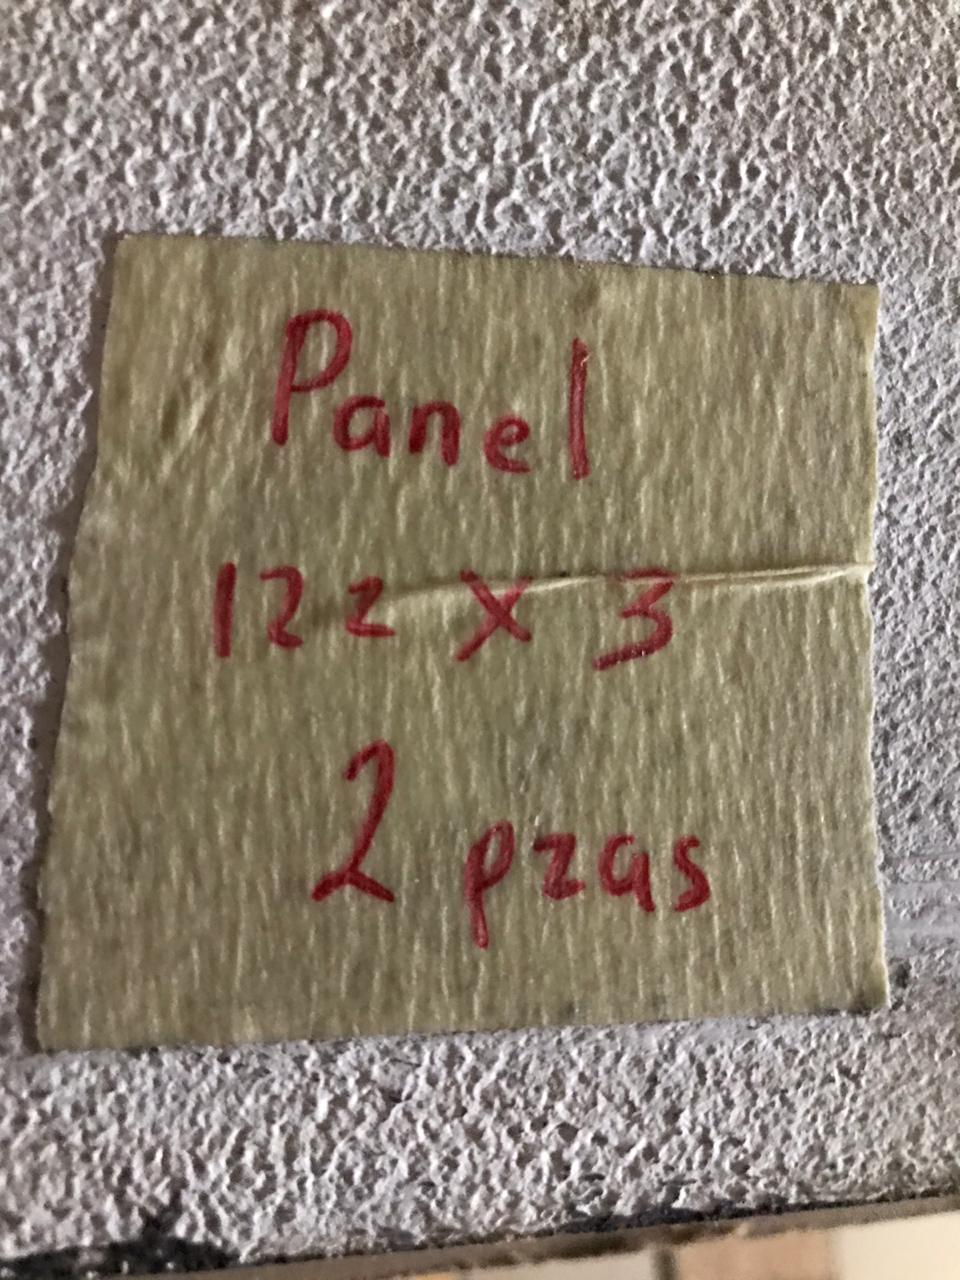 Panel
122 x 3
2 pzas